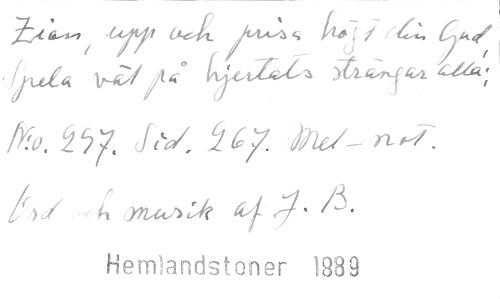 Zion, upp och prisa högt din Gud,
Spela väl på hjertats strängar alla;
N:o. 297. Sid. 267. Mel-not.
Ord och musik af J. B.
Hemlandstoner 1889